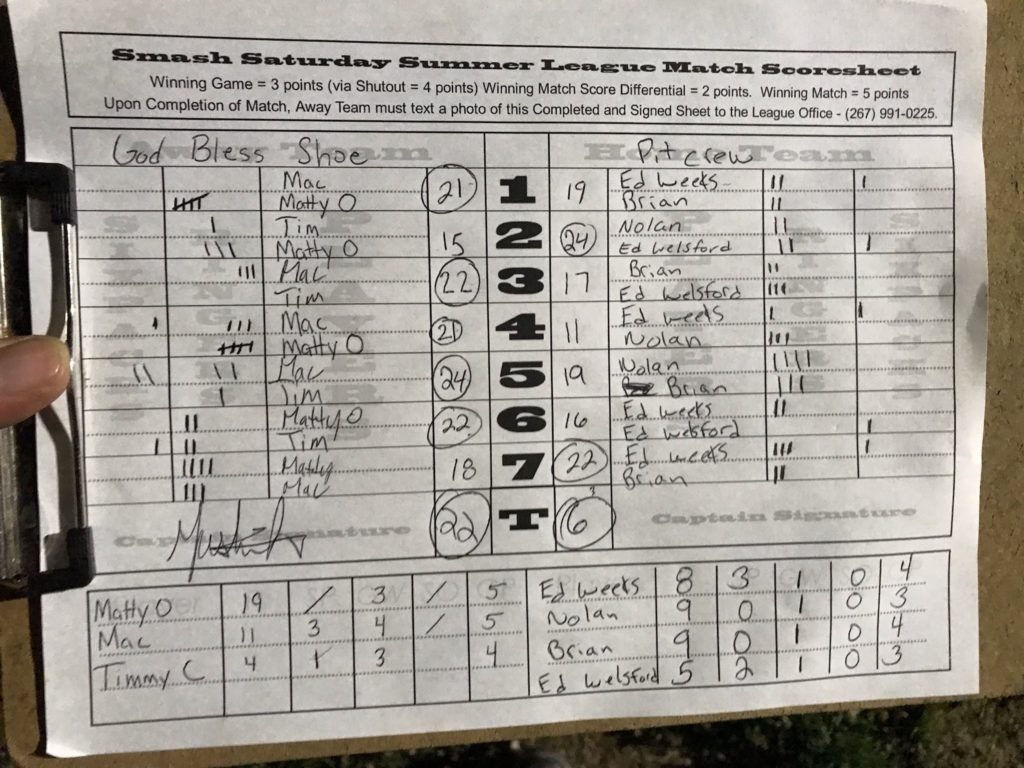 Smash Saturday Summer League Match Scoresheet
Winning Game = 3 points (via Shutout = 4 points) Winning Match Score Differential = 2 points. Winning Match = 5 points
Upon Completion of Match, Away Team must text a photo of this Completed and Signed Sheet to the League Office - (267) 991-0225.
God Bless Shoe Pit crew
Mac 21 1 19 Ed Weeks
Matty O Brian
Tim 15 2 24 Nolan
Matty O Ed Welsford
Mac 22 3 17 Brian
Tim Ed Welsford
Mac 21 4 11 Ed Weeks
Matty O Nolan
Mac 24 5 19 Nolan
Tim Brian
Matty O 22 6 16 Ed Weeks
Tim Ed Welsford
Matty 18 7 22 Ed Weeks
Mac Brian
22 T 6
Captain Signature
Matty O 19 / 3 / 5 Ed Weeks 8 3 1 0 4
Mac 11 3 4 / 5 Nolan 9 0 1 0 3
Timmy C 4 1 3 4 Brian 9 0 1 0 4
Ed Welsford 5 2 1 0 3